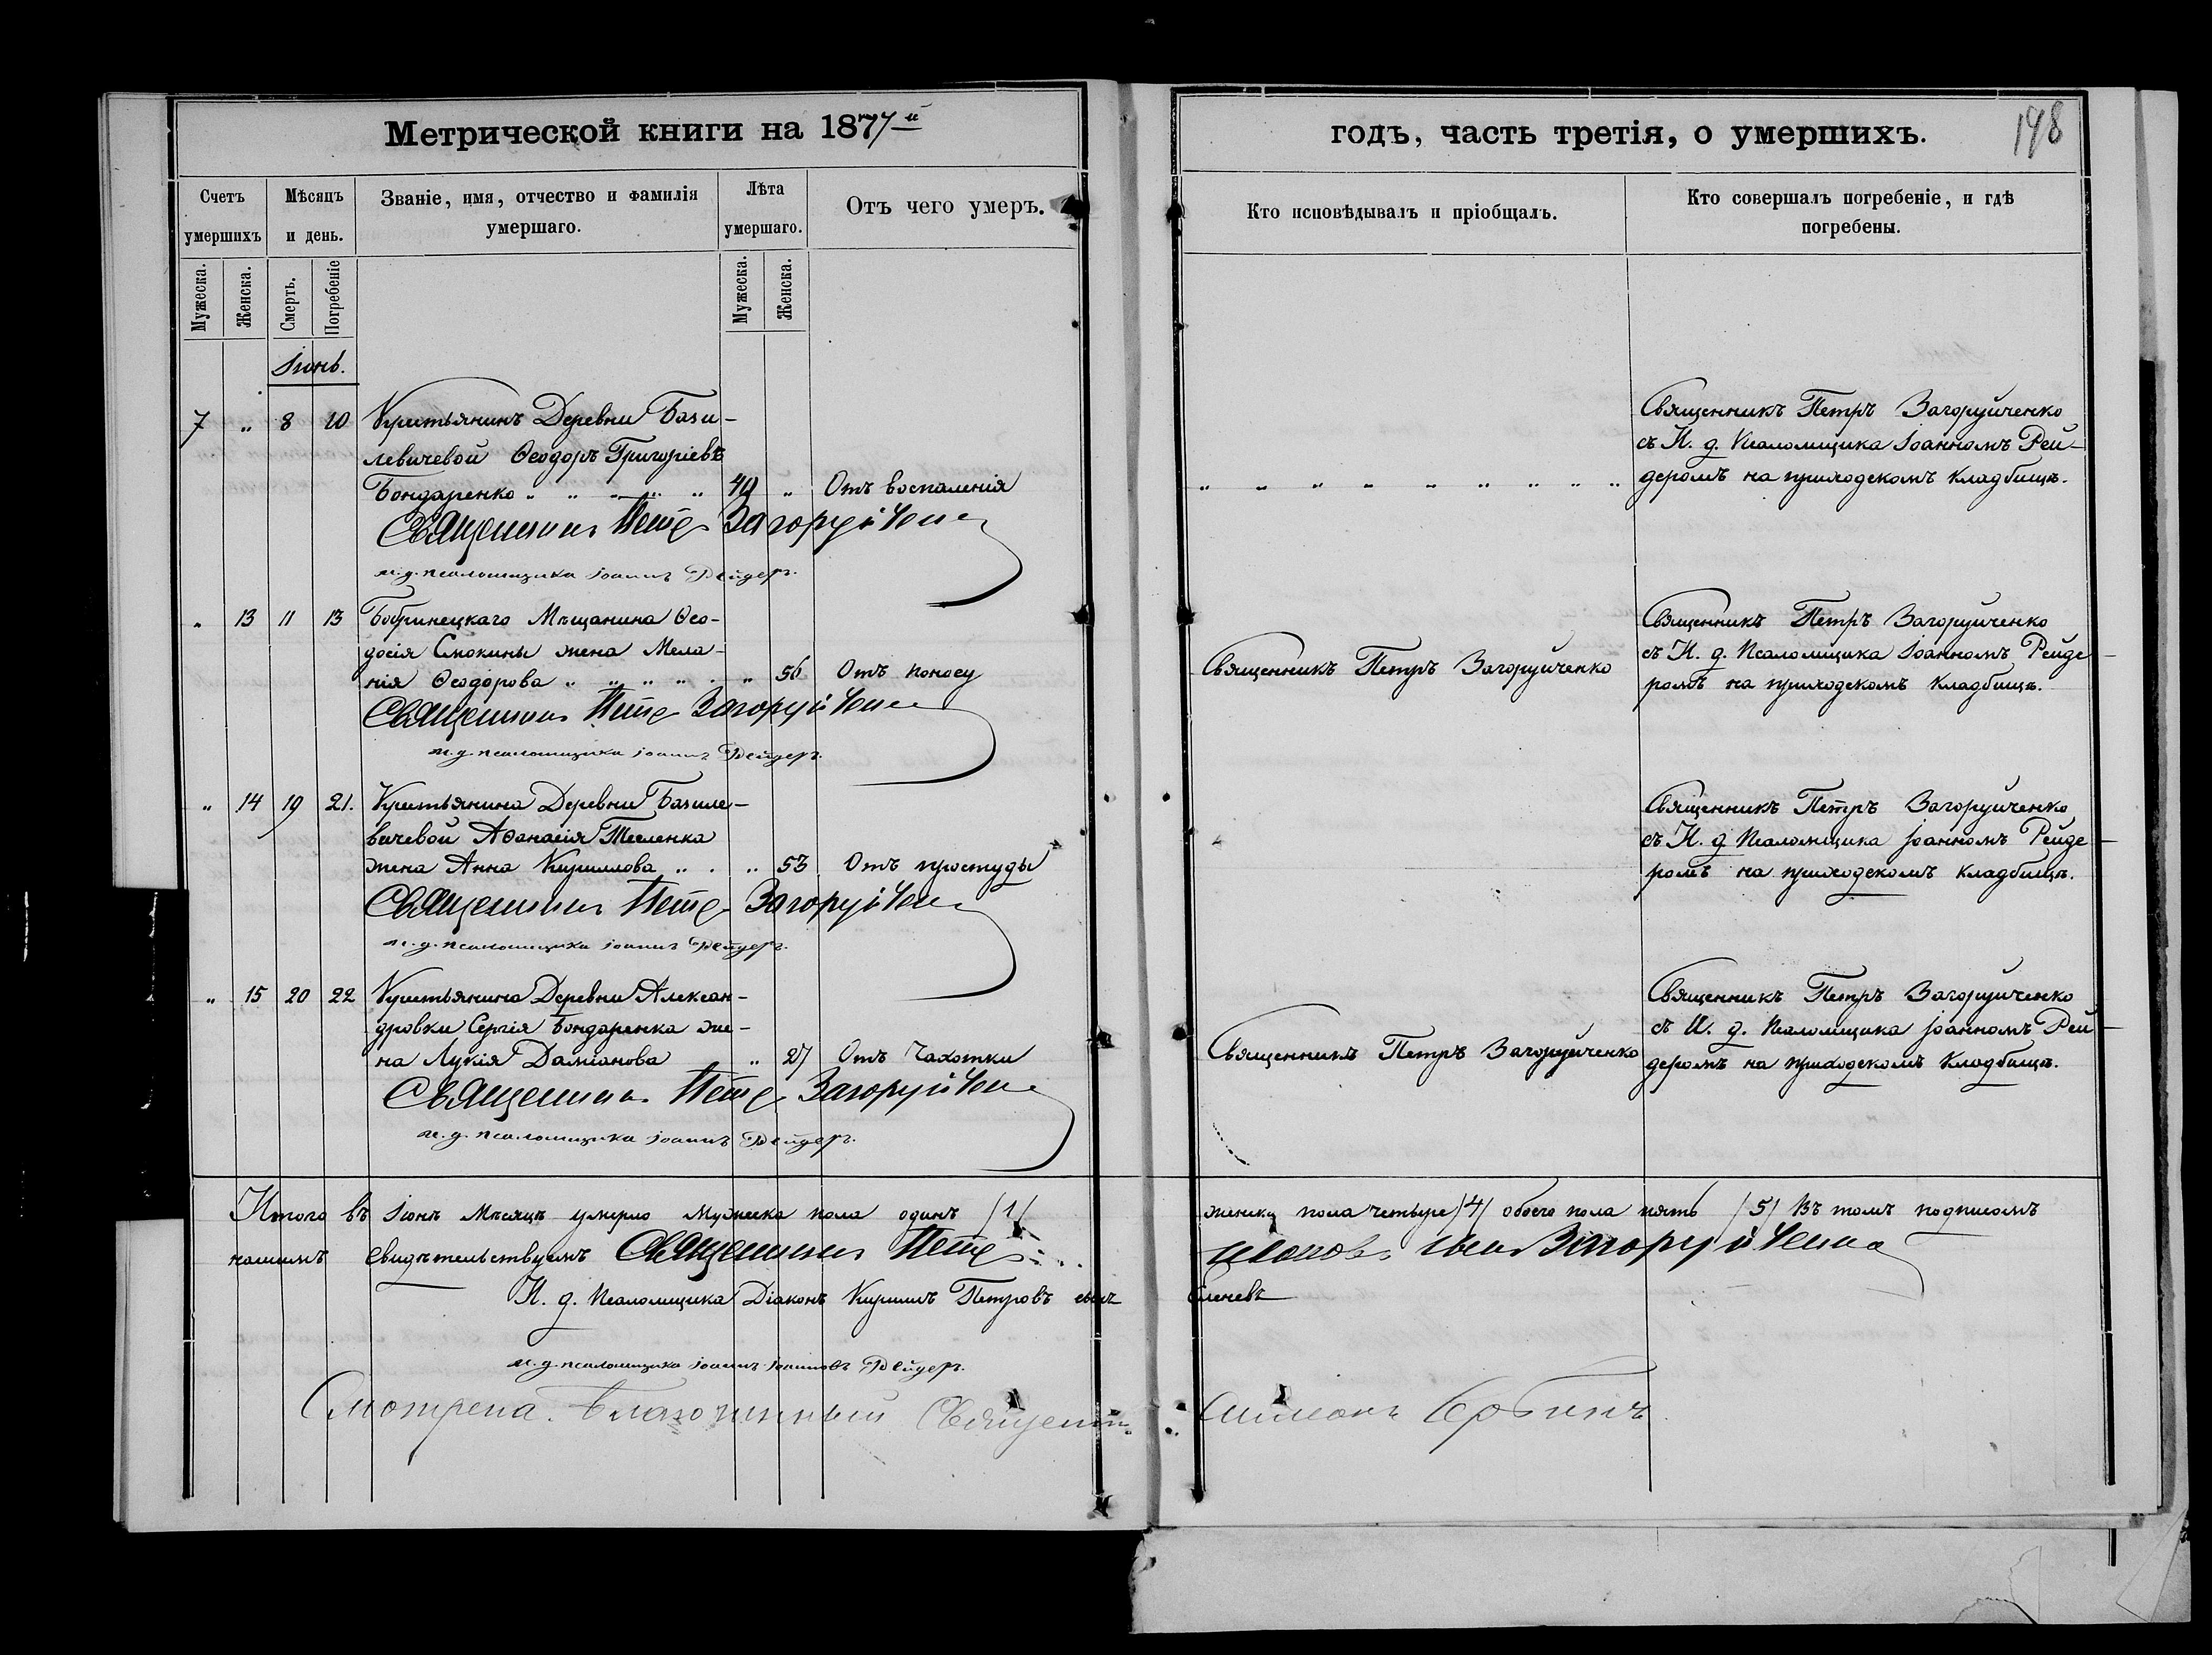 Метрической книги на 1877й
годъ, часть третія, о умершихъ.
198
Счетъ умершихъ
Мѣсяцъ и день.
Званіе, имя, отчество и фамилія умершаго.
Лѣта умершаго.
Отъ чего умеръ.
Кто исповѣдывалъ и пріобщалъ.
Кто совершалъ погребеніе, и гдѣ погребены.
Мужеска.
Женска.
Смерть.
Погребеніе
Мужеска.
Женска.
Іюнь.
7 „ 8 10 Крестьянинъ Деревни Бази-
левичевой Ѳеодоръ Григоріевъ
Бондаренко „ „ „ „ „ 49 „ Отъ воспаленія
Священникъ Петръ Загоруйченко
и. д. псаломщика Іоаннъ Рейдеръ.
„ „ „ „ „ „ „ „ „ „
Священникъ Петръ Загоруйченко
съ И. д. Псаломщика Іоанномъ Рей-
деромъ на приходскомъ кладбищѣ.
„ 13 11 13 Бобринецкаго Мѣщанина Ѳео-
досія Смокины жена Мела-
нія Ѳеодорова „ „ „ „ „ 56 Отъ поносу
Священникъ Петръ Загоруйченко
и. д. псаломщика Іоаннъ Рейдеръ.
Священникъ Петръ Загоруйченко
Священникъ Петръ Загоруйченко
съ И. д. Псаломщика Іоанномъ Рейде-
ромъ на приходскомъ кладбищѣ.
„ 14 19 21. Крестьянина Деревни Базиле-
вичевой Аѳанасія Тесленка
жена Анна Кириллова „ . „ 53 Отъ простуды
Священникъ Петръ Загоруйченко
и. д. псаломщика Іоаннъ Рейдеръ.
Священникъ Петръ Загоруйченко
съ И. д Псаломщика Іоанномъ Рейде-
ромъ на приходскомъ кладбищѣ.
„ 15 20 22 Крестьянина Деревни Алексан-
дровки Сергія Бондаренка же-
на Лукія Даміанова „ 27 Отъ Чахотки
Священникъ Петръ Загоруйченко
и. д. псаломщика Іоаннъ Рейдеръ.
Священникъ Петръ Загоруйченко
Священникъ Петръ Загоруйченко
съ И. д. Псаломщика Іоанномъ Рей-
деромъ на приходскомъ кладбищѣ.
Итого въ Іюнѣ Мѣсяцѣ умерло Мужеска пола одинъ /1/ женска пола четыре /4/ обоего пола пять /5/ Въ томъ подписомъ
нашимъ свидѣтельствуемъ Священникъ Петръ сынъ Загоруйченко
И. д. Псаломщика Діаконъ Кириллъ Петровъ сынъ
и. д. псаломщика Іоаннъ Іоанновъ Рейдеръ.
Смотрена. Благочинный Священникъ Симеонъ